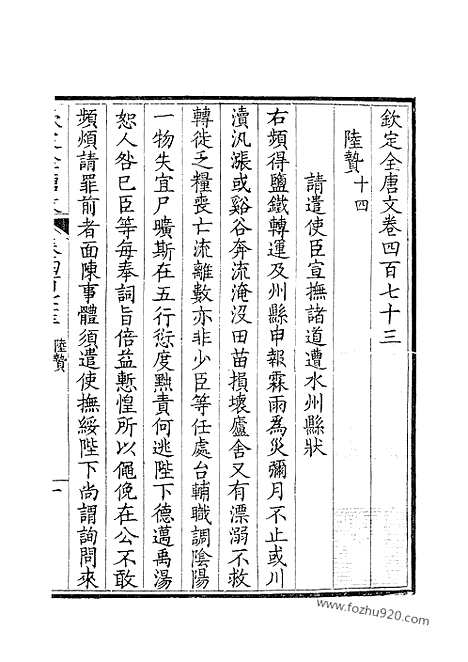 欽定全唐文卷四百七十三
陸贄十四
請遣使臣宣撫諸道遭水州縣狀
右頻得鹽鐵轉運及州縣申報霖雨為災彌月不止或川
瀆汎漲或谿谷奔流淹沒田苗損壞廬舍又有漂溺不救
轉徙乏糧喪亡流離數亦非少臣等任處台輔職調陰陽
一物失宜尸曠斯在五行愆度黜責何逃陛下德邁禹湯
恕人咎已臣等每奉詞旨倍益慙惶所以僶俛在公不敢
頻煩請罪前者面陳事體須遣使撫綏陛下尚謂詢問來
欽定全唐文 卷四百七十三 陸贄 一
www.fozhu920.com